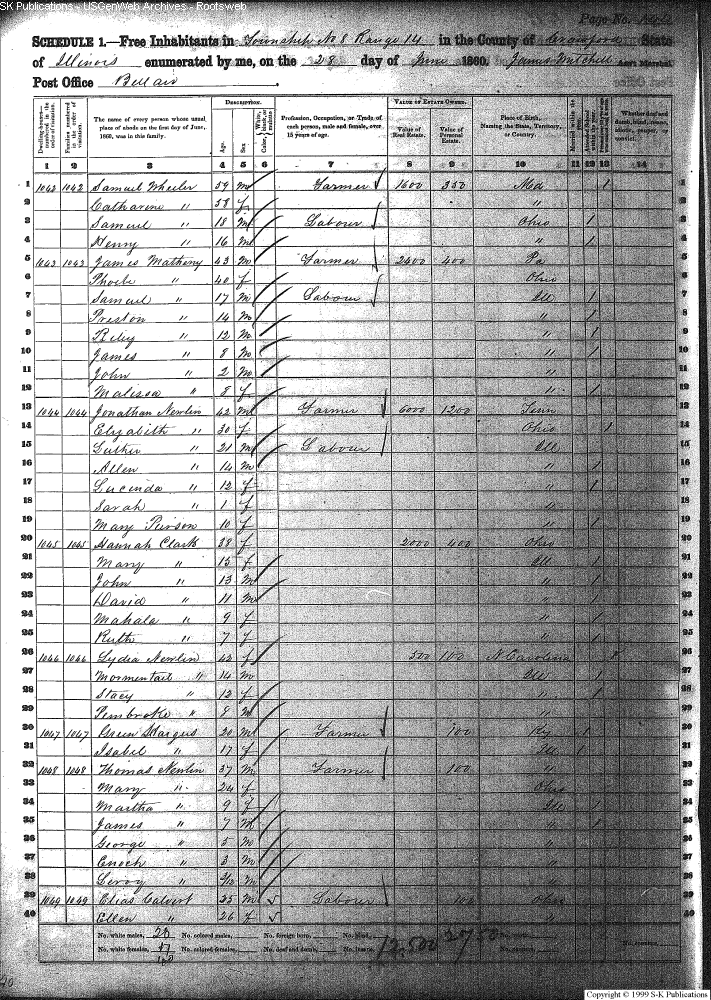 SK Publications - USGenWeb Archives - Rootsweb
Page No.
SCHEDULE 1.—Free Inhabitants in Township No 8 Range 14 in the County of Crawford State
of Illinois enumerated by me, on the 28 day of June 1860. James Mitchell Ass't Marshal
Post Office Bellair
Dwelling-houses—numbered in the order of visitation.
Families numbered in the order of visitation.
The name of every person whose usual place of abode on the first day of June, 1860, was in this family.
DESCRIPTION.
Age.
Sex.
Color, White, black, or mulatto.
Profession, Occupation, or Trade of each person, male and female, over 15 years of age.
VALUE OF ESTATE OWNED.
Value of Real Estate.
Value of Personal Estate.
Place of Birth, Naming the State, Territory, or Country.
Whether deaf and dumb, blind, insane, idiotic, pauper, or convict.
1 2 3 4 5 6 7 8 9 10 11 12 13 14
1 1042 1042 Samuel Wheeler 59 m Farmer 1600 350 Md 1 1
2 Catharine " 58 f " 2
3 Samuel " 18 m Labour Ohio 1 3
4 Henry " 16 m " 1 4
5 1043 1043 James Matheny 43 m Farmer 2400 400 Pa 5
6 Phoebe " 40 f Ohio 6
7 Samuel " 17 m Labour Ill 1 7
8 Preston " 14 m " 1 8
9 Riley " 12 m " 1 9
10 James " 8 m " 1 10
11 John " 2 m " 11
12 Malissa " 8 f " 1 12
13 1044 1044 Jonathan Newlin 42 m Farmer 6000 1200 Tenn 13
14 Elizabeth " 30 f Ohio 1 14
15 Luther " 21 m Labour Ill 15
16 Allen " 14 m " 1 16
17 Lucinda " 12 f " 1 17
18 Sarah " 1 f " 18
19 Mary Pierson 10 f " 1 19
20 1045 1045 Hannah Clark 38 f 2000 400 Ohio 20
21 Mary " 15 f Ill 1 21
22 John " 13 m " 1 22
23 David " 11 m " 1 23
24 Mahala " 9 f " 1 24
25 Ruth " 7 f " 1 25
26 1046 1046 Lydia Newlin 42 f 500 100 N Carolina 26
27 " 14 m Ill 1 27
28 Stacy " 12 f " 1 28
29 Pembroke " 8 m " 29
30 1047 1047 Green 20 m Farmer 100 Ky 1 30
31 Isabel " 17 f Ill 1 31
32 1048 1048 Thomas Newlin 37 m Farmer 100 " 32
33 Mary " 24 f Ohio 33
34 Martha " 9 f Ill 1 34
35 James " 7 m " 1 35
36 George " 5 m " 36
37 Enoch " 3 m " 37
38 Leroy " m " 38
39 1049 1049 Elias Calvert 25 m Labour 100 Ohio 39
40 Ellen " 26 f " 40
No. white males, No. colored males, No. foreign born, No. blind,
No. white females, 17 No. colored females, No. deaf and dumb, No. insane, 12,500 2750
Copyright © 1999 S-K Publications